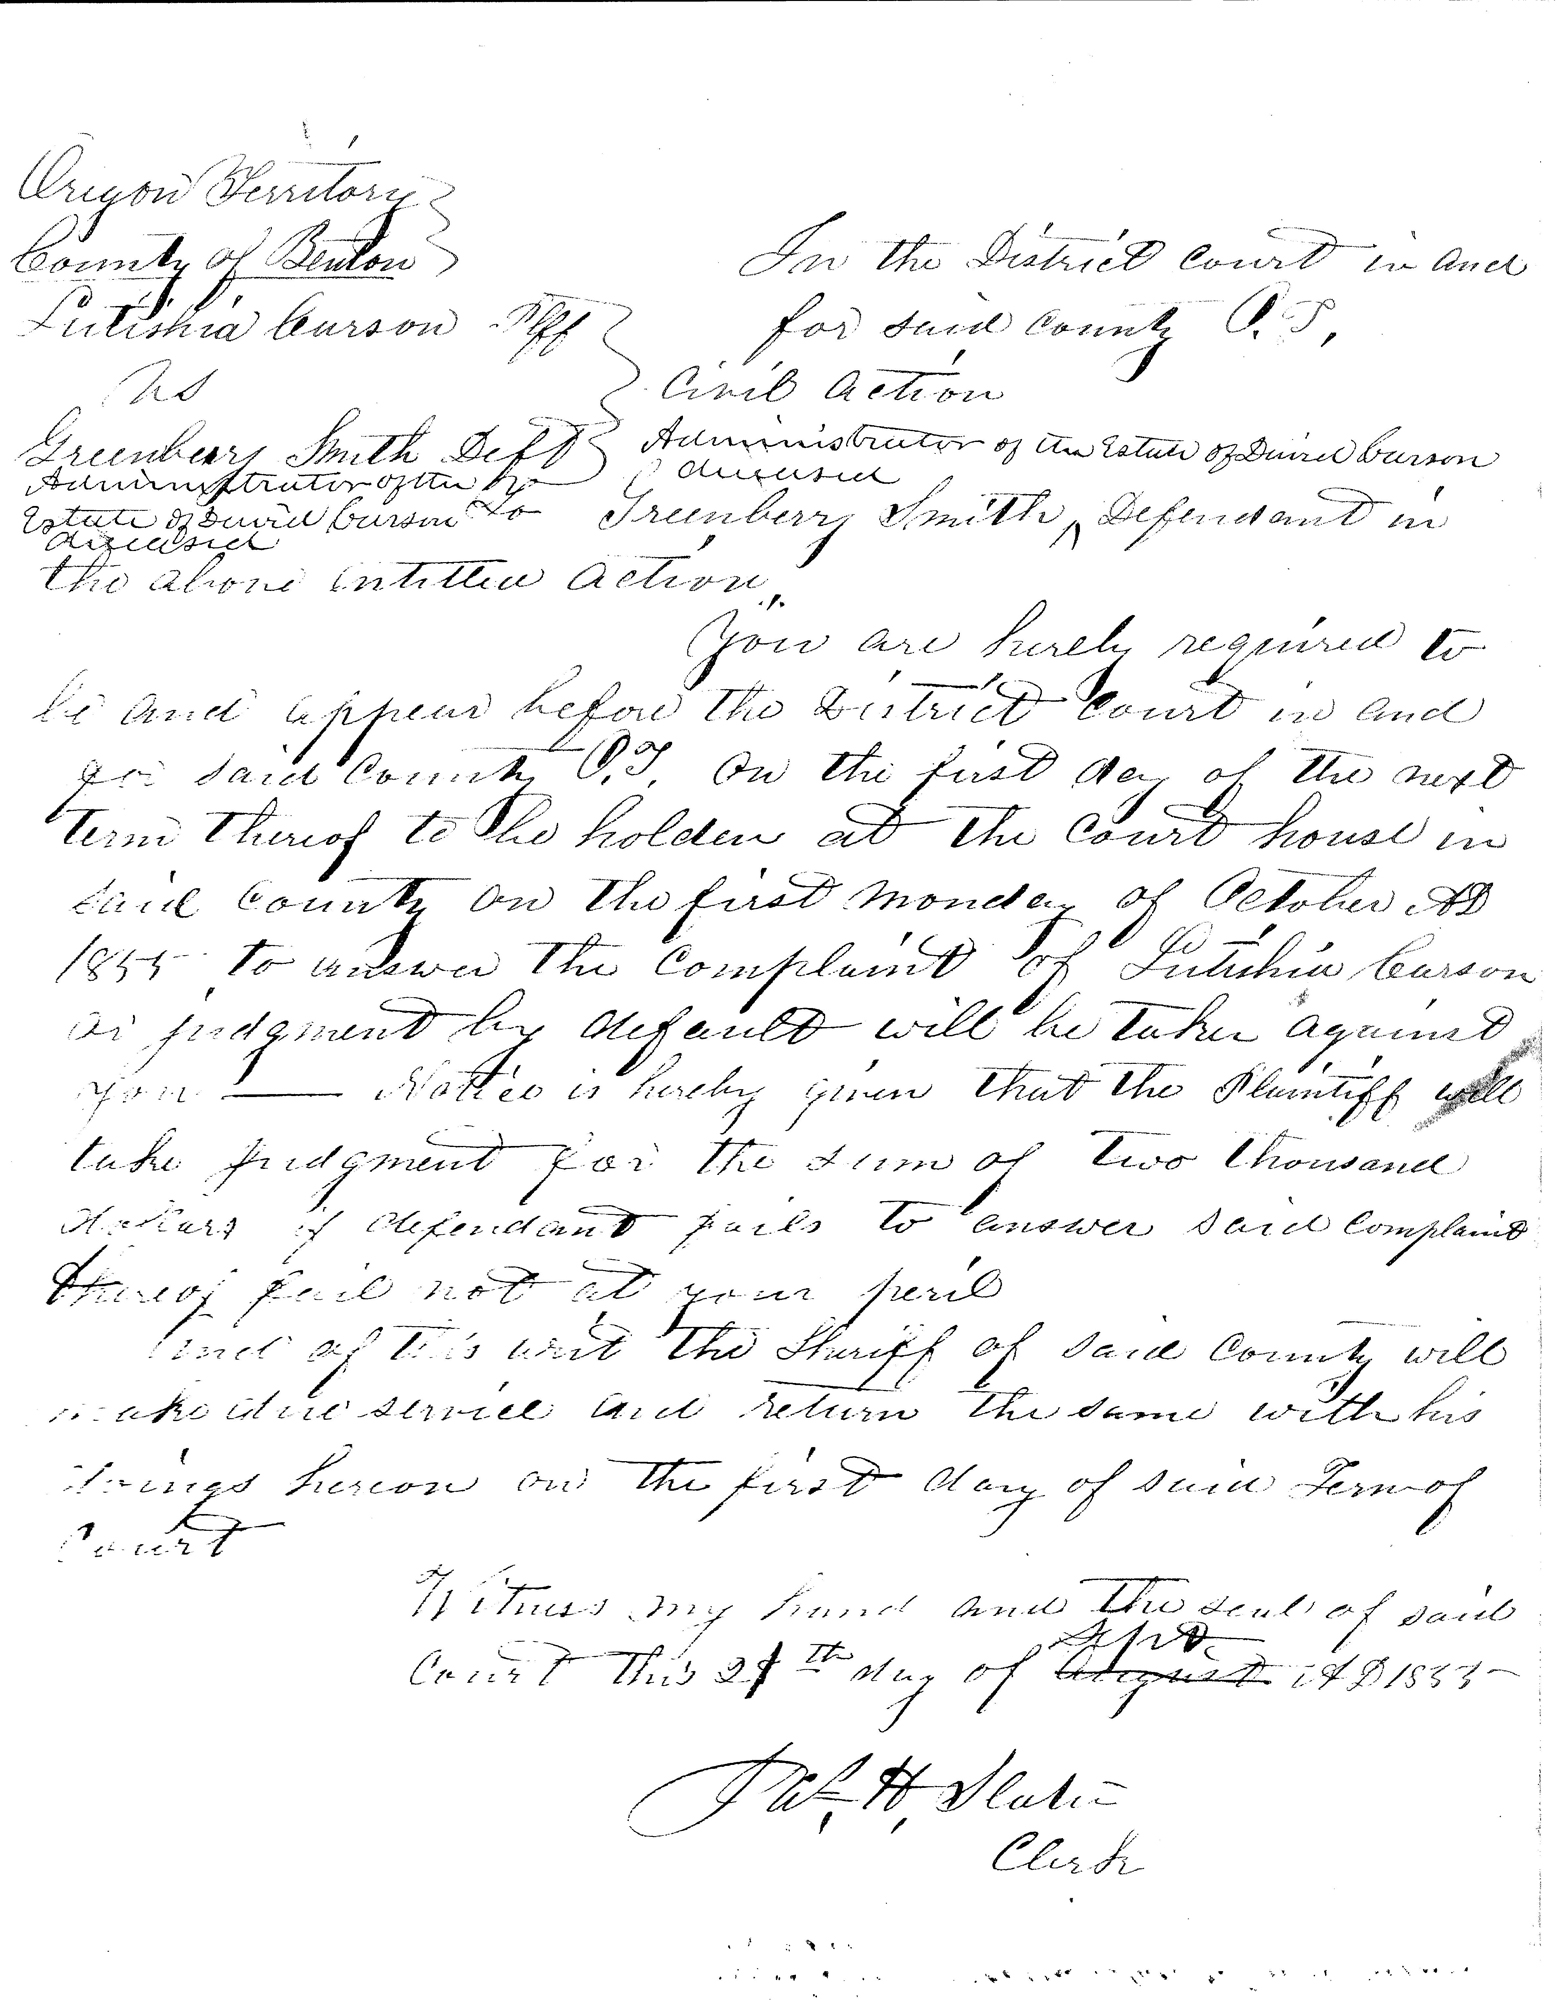 Oregon Territory
County of Benton
In the District Court in and
for said County O. T,
Lutishia Carson Plff
vs
Civil Action
Greenberry Smith Deft
Administrator of the
Estate of David Carson
deceased
Administrator of the Estate of David Carson
deceased
To Greenberry Smith, ^ Defendant in
the above entitled Action.
You are hereby required to
be and appear before the District Court in and
for said County O.T. on the first day of the next
term thereof to be holden at the Court house in
said County on the first Monday of October AD
1855 to answer the Complaint of Lutishia Carson
or judgment by default will be taken against
you — Notice is hereby given that the Plaintiff will
take judgment for the sum of two thousand
dollars if defendant fails to answer said complaint
thereof fail not at your peril
And of this writ the Sheriff of said County will
make due service and return the same with his
doings hereon on the first day of said Term of
Court
Witness my hand and the seal of said
Sept
Court this 2 th day of August AD 1855
Jas. H. Slater
Clerk